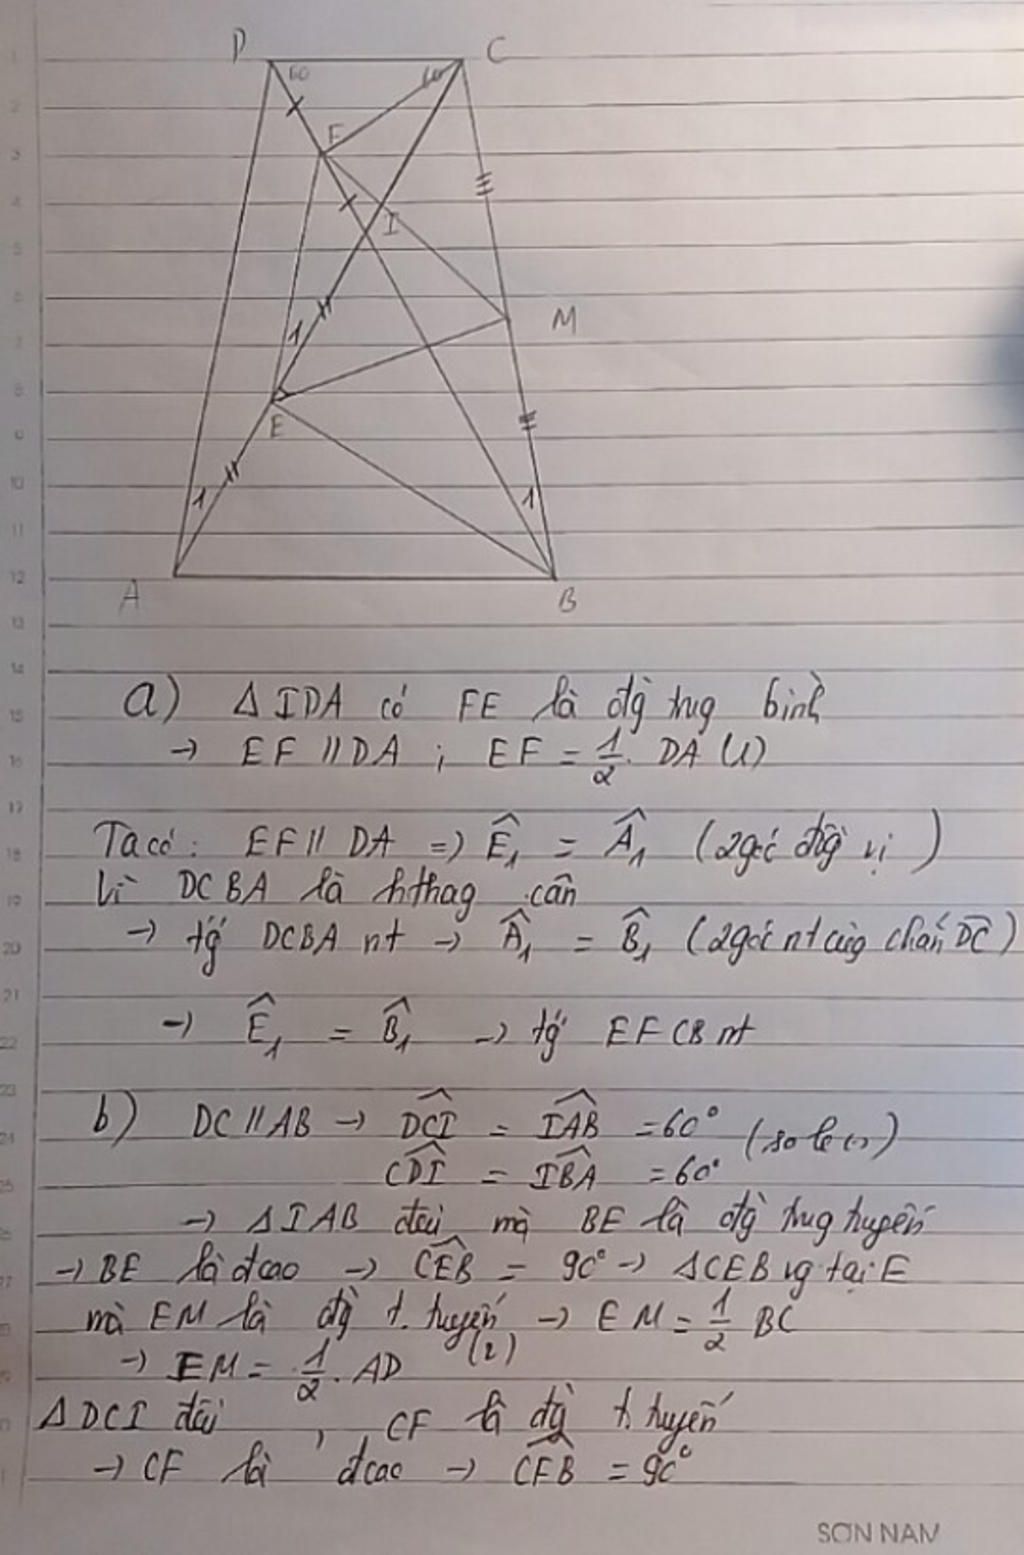 D
C
60
60
F
I
M
1
E
1
1
A
B
a) Δ IDA có FE là đg̀ trug bình
→ EF // DA ; EF = 1/2 . DA (1)
Ta có : EF // DA => Ê₁ = Â₁ (2 góc đồg vị)
Vì DCBA là hthag cân
→ tg' DCBA nt → Â₁ = B̂₁ (2 góc nt cùg chắn DC)
→ Ê₁ = B̂₁ → tg' EFCB nt
b) DC // AB → DCI = IAB = 60° (so le (~))
CDI = IBA = 60°
→ Δ IAB đều mà BE là đg̀ trug tuyến
→ BE là đcao → CEB = 90° → Δ CEB vg tại E
mà EM là đg̀ t. tuyến → EM = 1/2 BC
→ EM = 1/2 . AD (2)
Δ DCI đều , CF là đg̀ t. tuyến
→ CF là đcao → CFB = 90°
SƠN NAM
1
2
3
4
5
6
7
8
9
10
11
12
13
14
15
16
17
18
19
20
21
22
23
24
25